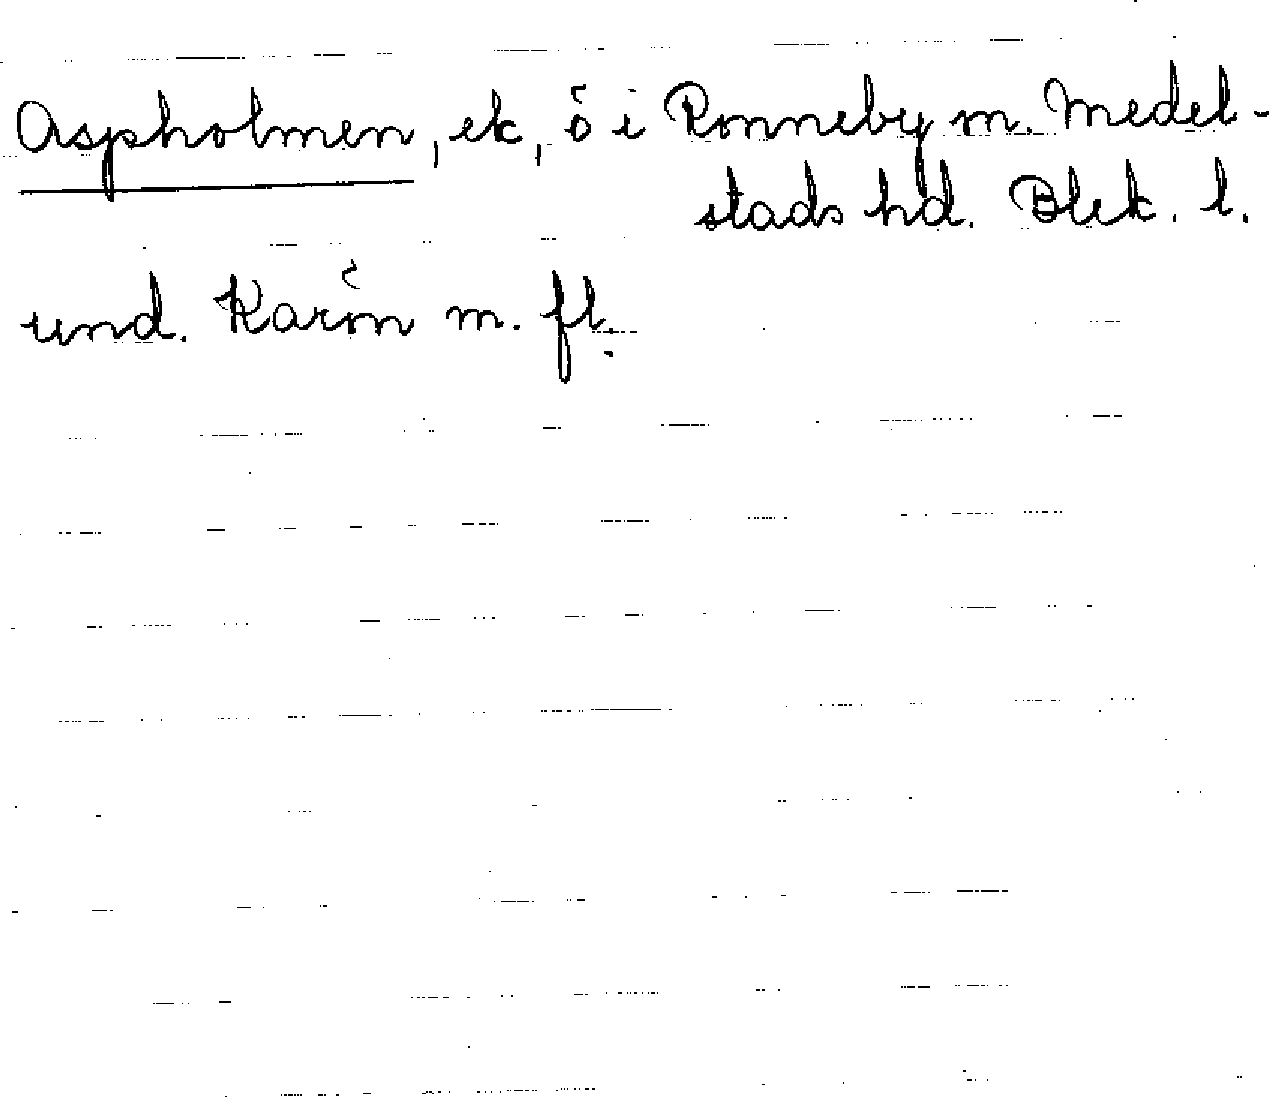 Aspholmen, ek, ö i Ronneby m. Medel-
stads hd. Blek. l.
und. Karön m. fl.